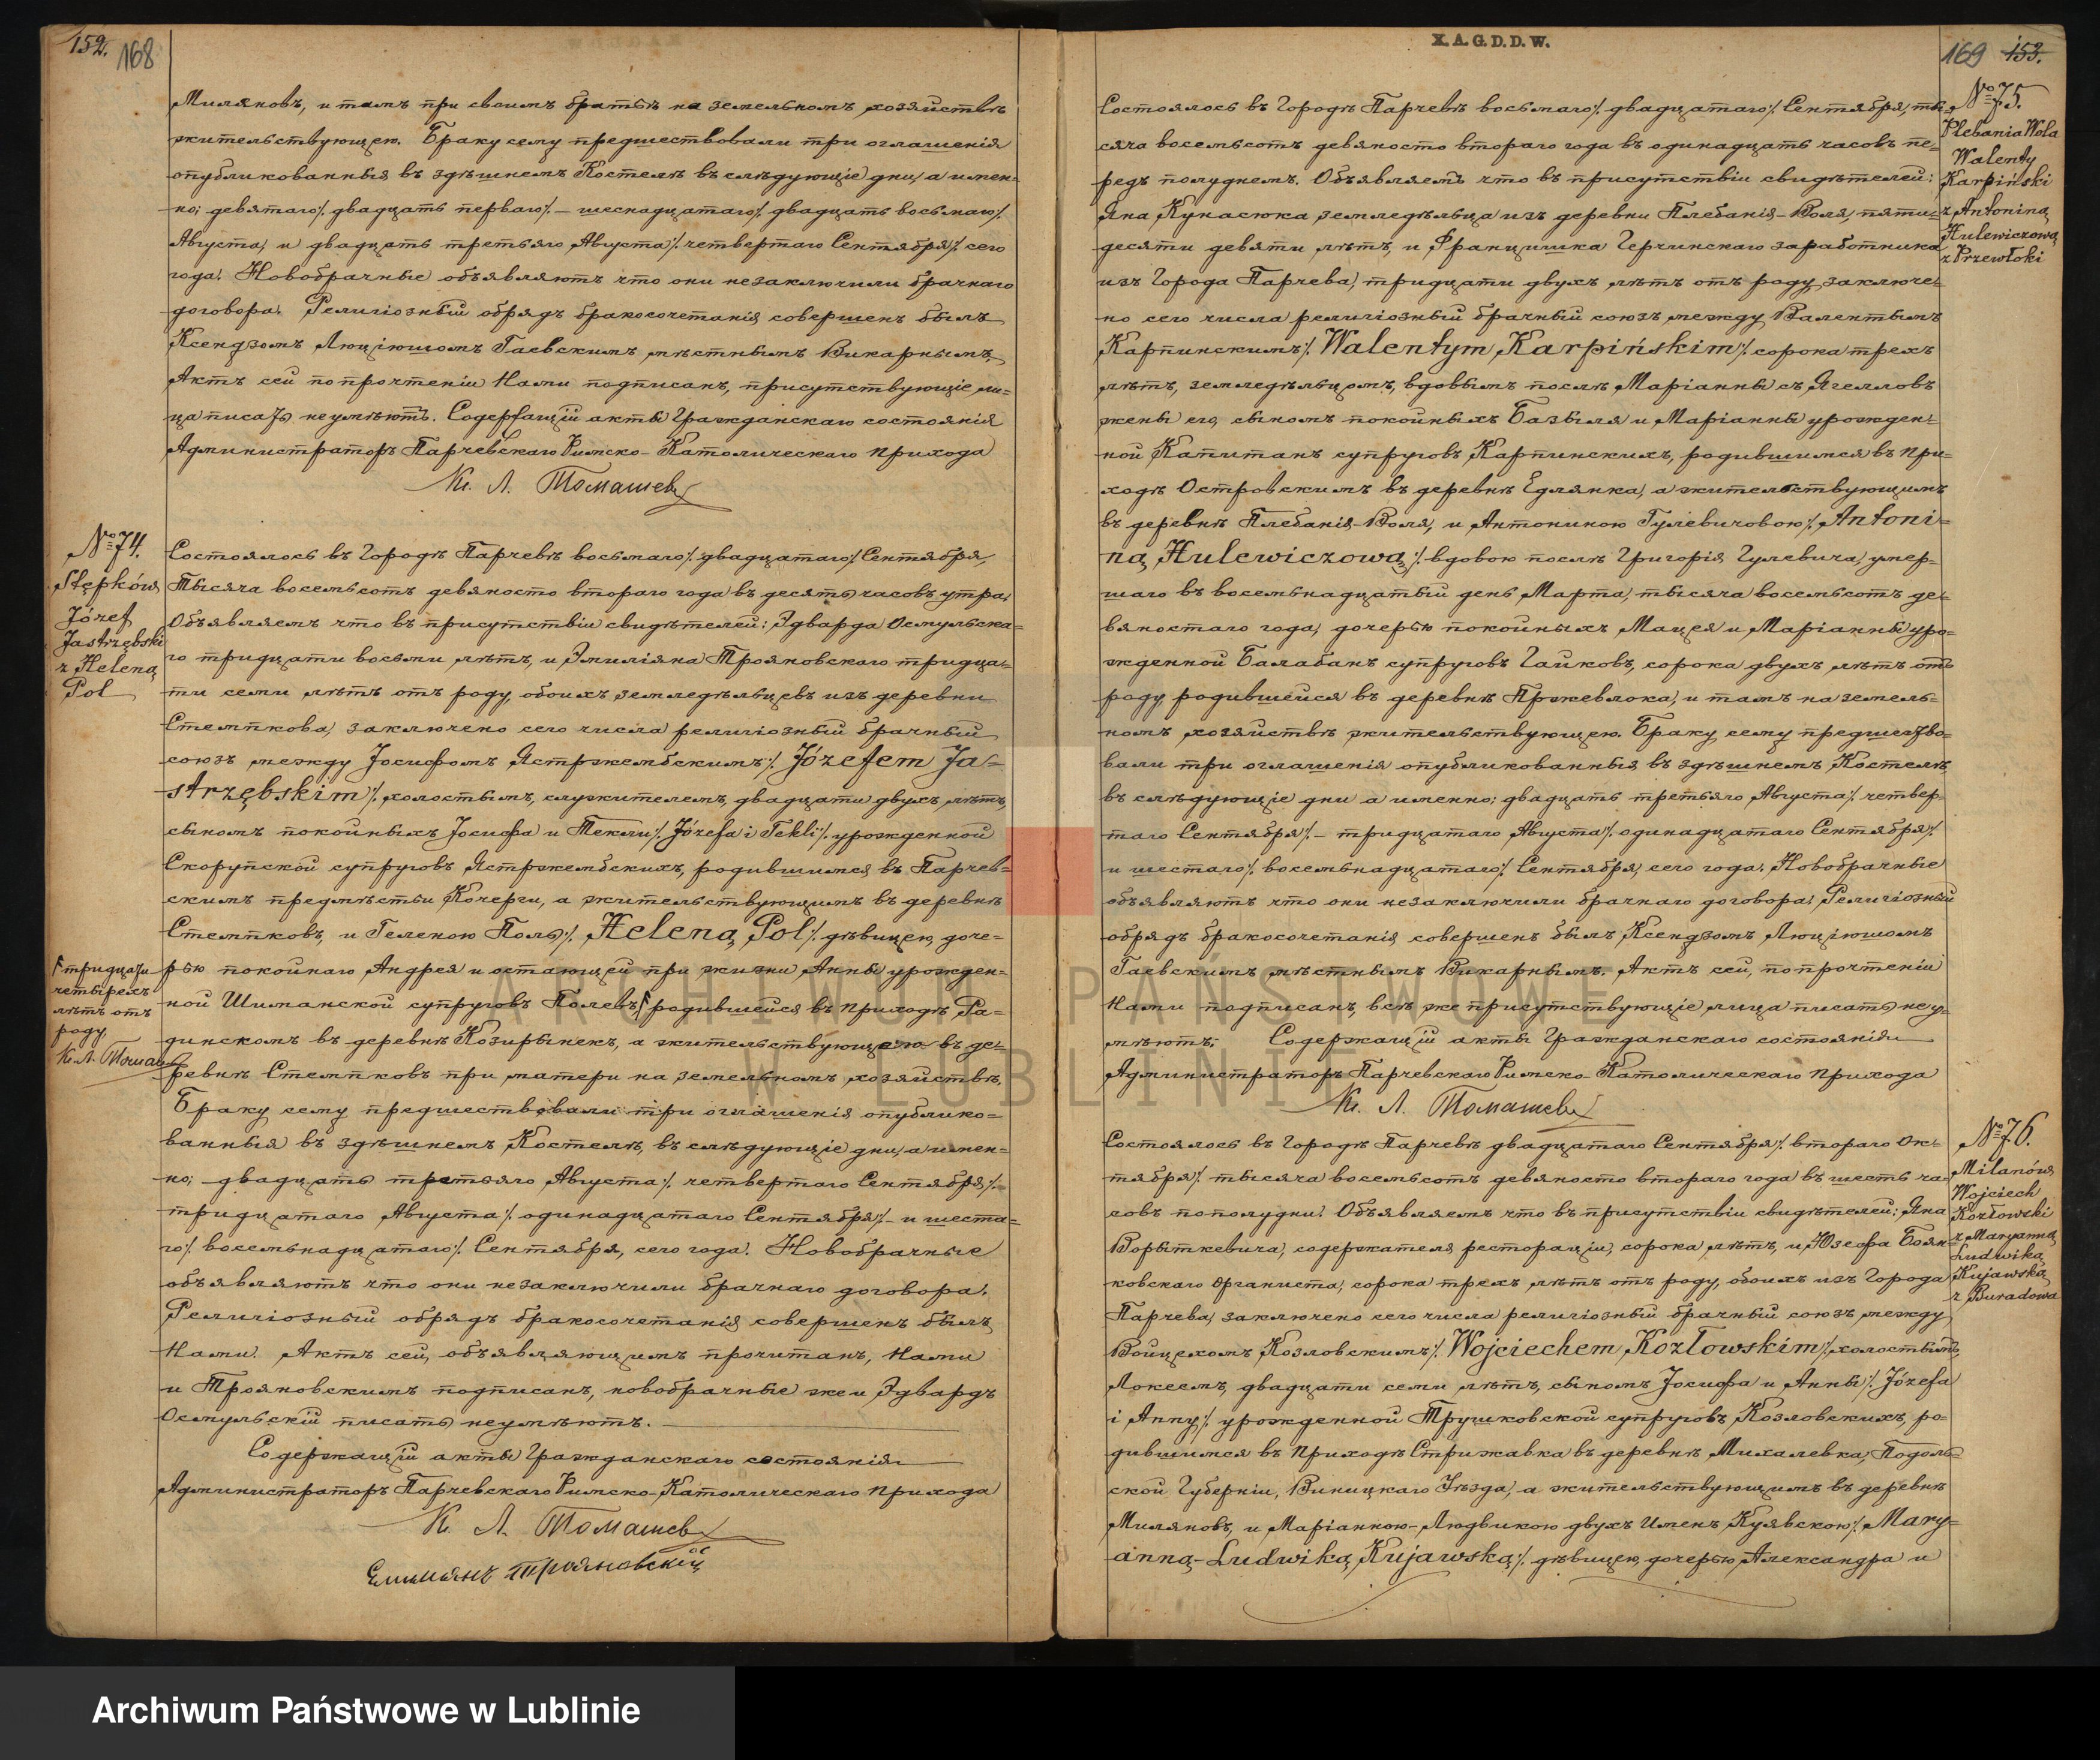 152. 168
Миляновъ, и тамъ при своимъ братьѣ на земельномъ хозяйствѣ
жительствующею. Браку сему предшествовали три оглашенія
опубликованныя въ здѣшнемъ Костелѣ въ слѣдующіе дни, а имен=
но: девятаго/. двадцать перваго/. – шеснадцатаго/. двадцать восьмаго/.
Августа, и двадцать третьяго Августа/. четвертаго Сентября/. сего
года. Новобрачные объявляютъ что они незаключили брачнаго
договора. Религіозный обрядъ бракосочетанія совершенъ былъ
Ксендзомъ Люціюшомъ Гаевскимъ мѣстнымъ Викарнымъ,
Актъ сей по прочтеніи Нами подписанъ, присутствующіе ли=
ца писать неумѣютъ. Содержащій акты Гражданскаго состоянія
Администраторъ Парчевскаго Римско-Католическаго прихода
Кс. Л. Томашев
№ 74.
Stępków
Józef
Jastrzębski
z Heleną
Pol
Состоялось въ Городѣ Парчевѣ восьмаго/. двадцатаго/. Сентября,
Тысяча восемьсотъ девяносто втораго года въ десять часовъ утра.
Объявляемъ что въ присутствіи свидѣтелей: Эдварда Осмульска=
го тридцати восьми лѣтъ, и Эмиліяна Трояновскаго тридца=
ти семи лѣтъ отъ роду, обоихъ земледѣльцевъ изъ деревни
Стемпкова, заключено сего числа религіозный брачный
союзъ между Іосифомъ Ястржембскимъ/. Józefem Ja=
strzębskim/. холостымъ, служителемъ, двадцати двухъ лѣтъ,
сыномъ покойныхъ Іосифа и Текли/. Józefa i Tekli/. урожденной
Скорупской супруговъ Ястржембскихъ, родившимся въ Парчев=
скимъ предмѣстьи Кочерги, а жительствующимъ въ деревнѣ
Стемпковъ, и Геленою Поль/. Heleną Pol/. дѣвицею, доче=
рью покойнаго Андрея и остающей при жизни Анны урожден=
ной Шиманской супруговъ Полевъ, родившейся въ приходѣ Ра=
динскомъ въ деревнѣ Козирынекъ, а жительствующею въ де=
ревнѣ Стемпковъ при матери на земельномъ хозяйствѣ,
тридцати
четырехъ
лѣтъ отъ
роду.
Кс. Л. Томашев
Браку сему предшествовали три оглашенія опублико=
ванныя въ здѣшнемъ Костелѣ, въ слѣдующіе дни, а имен=
но: двадцать третьяго Августа/. четвертаго Сентября/. –
тридцатаго Августа/. одинадцатаго Сентября/. – и шеста=
го/. восемьнадцатаго/. Сентября, сего года. Новобрачные
объявляютъ что они незаключили брачнаго договора.
Религіозный обрядъ бракосочетанія совершенъ былъ
Нами. Актъ сей, объявляющимъ прочитанъ, Нами
и Трояновскимъ подписанъ, новобрачные же и Эдвардъ
Осмульскій писать неумѣютъ.
Содержащій акты Гражданскаго состоянія
Администраторъ Парчевскаго Римско-Католическаго прихода
Кс. Л. Томашев
Емилиянъ Трояновскій
X.A.G.D.D.W.
169 153.
№ 75.
Plebania Wola
Walenty
Karpiński
z Antoniną
Hulewiczową
z Przewłoki
Состоялось въ Городѣ Парчевѣ восьмаго/. двадцатаго/. Сентября, ты=
сяча восемьсотъ девяносто втораго года въ одинадцать часовъ пе=
редъ полуднемъ. Объявляемъ что въ присутствіи свидѣтелей:
Яна Кукасюка земледѣльца изъ деревни Плебанія-Воля, пяти=
десяти девяти лѣтъ, и Францишка Герчинскаго заработника
изъ Города Парчева, тридцати двухъ лѣтъ отъ роду, заключе=
но сего числа религіозный брачный союзъ между Валентымъ
Карпинскимъ/. Walentym Karpińskim/. сорока трехъ
лѣтъ, земледѣльцомъ, вдовымъ послѣ Маріанны съ Ягелловъ
жены его, сыномъ покойныхъ Базыля и Маріанны урожден=
ной Капитанъ супруговъ Карпинскихъ, родившимся въ при=
ходѣ Островскимъ въ деревнѣ Едлянка, а жительствующимъ
въ деревнѣ Плебанія-Воля, и Антониною Гулевичовою/. Antoni=
ną Hulewiczową/. вдовою послѣ Григорія Гулевича, умер=
шаго въ восемьнадцатый день Марта, тысяча восемьсотъ де=
вяностаго года, дочерью покойныхъ Мацея и Маріанны уро=
жденной Балабанъ супруговъ Гайковъ, сорока двухъ лѣтъ отъ
роду, родившейся въ деревнѣ Пржевлока, и тамъ на земель=
номъ хозяйствѣ жительствующею. Браку сему предшество=
вали три оглашенія опубликованныя въ здѣшнемъ Костелѣ,
въ слѣдующіе дни а именно: двадцать третьяго Августа/. четвер=
таго Сентября/. – тридцатаго Августа/. одинадцатаго Сентября/.
и шестаго/. восемьнадцатаго/. Сентября, сего года. Новобрачные
объявляютъ что они незаключили брачнаго договора. Религіозный
обрядъ бракосочетанія совершенъ былъ Ксендзомъ Люціюшомъ
Гаевскимъ мѣстнымъ Викарнымъ. Актъ сей, по прочтеніи
Нами подписанъ, всѣ же присутствующіе лица писать неу=
мѣютъ. Содержащій акты Гражданскаго состоянія
Администраторъ Парчевскаго Римско-Католическаго прихода
Кс. Л. Томашев
№ 76.
Milanów
Wojciech
Kozłowski
z Maryanną
Ludwiką
Kujawską
z Buradowa
Состоялось въ Городѣ Парчевѣ двадцатаго Сентября/. втораго Ок=
тября/. тысяча восемьсотъ девяносто втораго года въ шесть ча=
совъ пополудни. Объявляемъ что въ присутствіи свидѣтелей: Яна
Ворыткевича, содержателя ресторации, сорока лѣтъ, и Юзефа Боян=
ковскаго органиста, сорока трехъ лѣтъ отъ роду, обоихъ изъ Города
Парчева, заключено сего числа религіозный брачный союзъ между
Войцехомъ Козловскимъ/. Wojciechem Kozłowskim/. холостымъ,
Локеемъ, двадцати семи лѣтъ, сыномъ Іосифа и Анны/. Józefa
i Anny/. урожденной Трушковской супруговъ Козловскихъ, ро=
дившимся въ приходѣ Стрижавка въ деревнѣ Михалевка, Подоль=
ской Губерніи, Виницкаго Уѣзда, а жительствующимъ въ деревнѣ
Миляновъ, и Маріанною-Людвикою двухъ Именъ Куявскою/. Mary=
anną-Ludwiką Kujawską/. дѣвицею, дочерью Александра и
ARCHIWUM PAŃSTWOWE
W LUBLINIE
Archiwum Państwowe w Lublinie